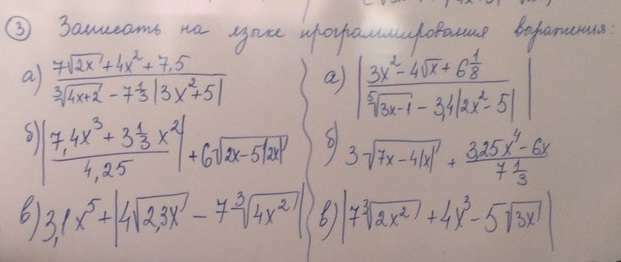 ③ Записать на языке программирования выражения:
а) (7√(2x) + 4x² + 7,5) / (∛(4x+2) − 7⅓|3x²+5|)
б) |(7,4x³ + 3⅓x²) / 4,25| + 6√(2x−5|2x|)
в) 3,1x⁵ + |4√(2,3x) − 7∛(4x²)|
а) |(3x² − 4√x + 6⅛) / (⁵√(3x−1) − 3,4|2x² − 5|)|
б) 3√(7x−4|x|) + (3,25x⁴ − 6x) / 7⅓
в) |7∛(2x²) + 4x³ − 5√(3x)|